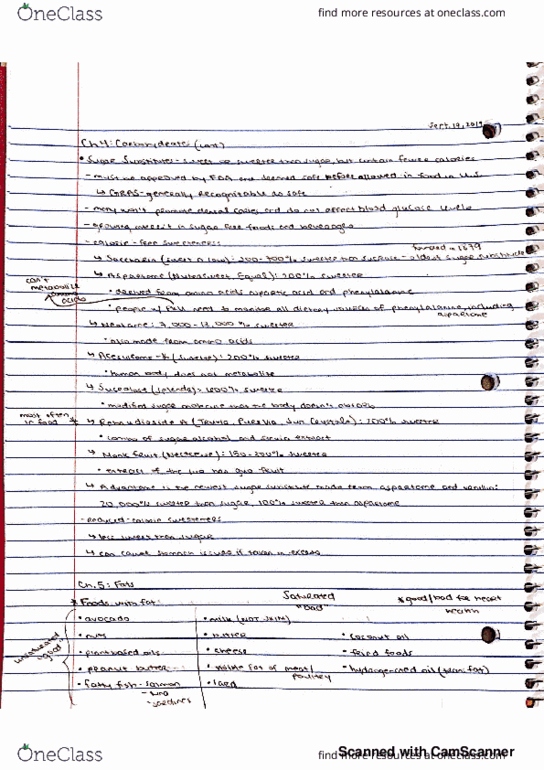 OneClass
find more resources at oneclass.com
Sept. 19, 2019
Ch 4: Carbohydrates (cont)
• Sugar Substitutes - sweet or sweeter than sugar, but contain fewer calories
- must be approved by FDA and deemed safe before allowed in food in U.S
↳ GRAS - generally recognizable as safe
- many won't promote dental caries and do not affect blood glucose levels
- growing interest in sugar free foods and beverages
- calorie - free sweeteners
founded in 1879
↳ Saccharin (sweet n low): 200-700% sweeter than sucrose - oldest sugar substitute
↳ Aspartame (Nutrasweet, Equal): 200% sweeter
can't metabolize amino acids
• derived from amino acids aspartic acid and phenylalanine
• people w/ PKU need to monitor all dietary sources of phenylalanine, including aspartame
↳ Neotame: 7,000-13,000% sweeter
• also made from amino acids
↳ Acesulfame-K (Sunette): 200% sweeter
• human body does not metabolize
↳ Sucralose (Splenda): 600% sweeter
• modified sugar molecule that the body doesn't absorb
most often in food * ↳ Rebaudioside A (Truvia, PureVia, Sun Crystals): 200% sweeter
• combo of sugar alcohol and stevia extract
↳ Monk fruit (Nectresse): 150-200% sweeter
• extract of the luo han guo fruit
↳ Advantame is the newest sugar substitute made from aspartame and vanillin:
20,000% sweeter than sugar, 100% sweeter than aspartame
- reduced - calorie sweeteners
↳ less sweet than sugar
↳ can cause stomach issues if taken in excess
Ch. 5: Fats
* Foods with fat:
Saturated
"bad"
* good/bad for heart health
unsaturated "good"
• avocado
• nuts
• plant based oils
• peanut butter
• fatty fish - salmon
- tuna
- sardines
• milk (NOT skim)
• butter
• cheese
• visible fat of meat/ poultry
• lard
• coconut oil
• fried foods
• hydrogenated oil (trans fat)
OneClass
find more resources at oneclass.com
Scanned with CamScanner